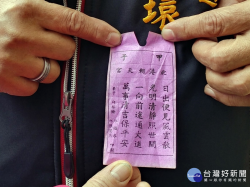 環
甲子
日出便見風雲散
光明清淨照世間
一向前途通大道
萬事清吉保平安
台灣好新聞